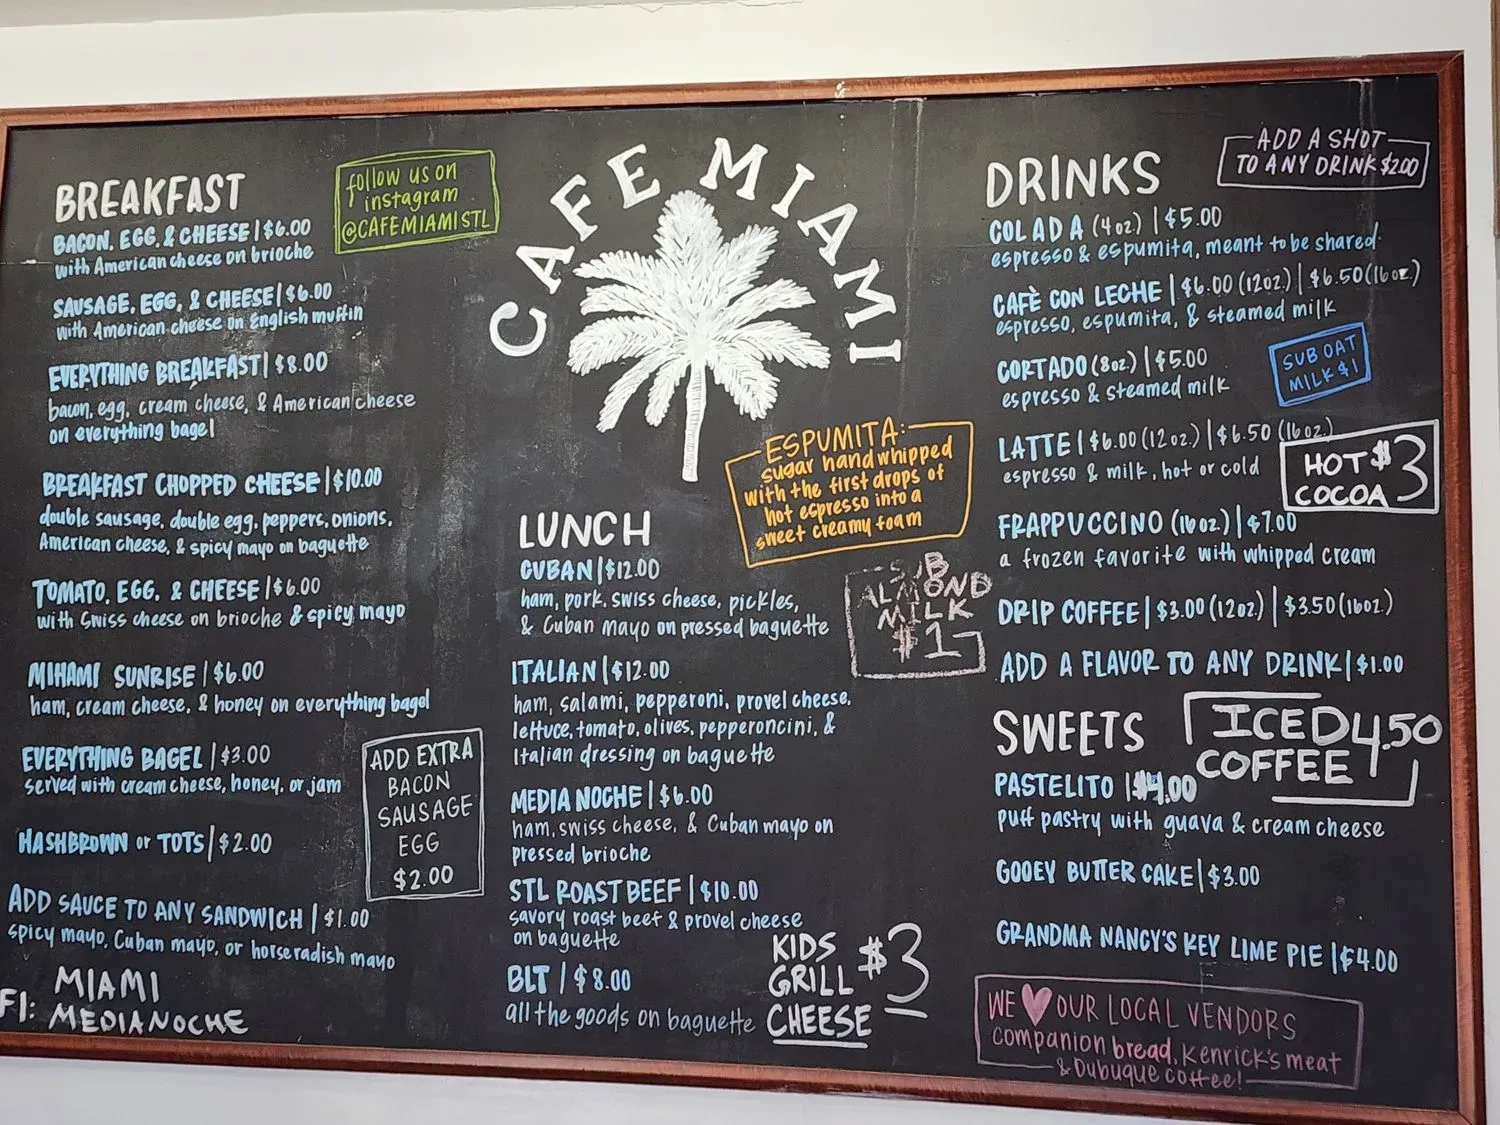 BREAKFAST
BACON, EGG, & CHEESE | $6.00
with American cheese on brioche
SAUSAGE, EGG, & CHEESE | $6.00
with American cheese on English muffin
EVERYTHING BREAKFAST | $8.00
bacon, egg, cream cheese, & American cheese
on everything bagel
BREAKFAST CHOPPED CHEESE | $10.00
double sausage, double egg, peppers, onions,
American cheese, & spicy mayo on baguette
TOMATO, EGG, & CHEESE | $6.00
with Swiss cheese on brioche & spicy mayo
MIHAMI SUNRISE | $6.00
ham, cream cheese, & honey on everything bagel
EVERYTHING BAGEL | $3.00
served with cream cheese, honey, or jam
HASHBROWN or TOTS | $2.00
ADD SAUCE TO ANY SANDWICH | $1.00
spicy mayo, Cuban mayo, or horseradish mayo
MIAMI
FI: MEDIANOCHE
follow us on
instagram
@CAFEMIAMISTL
ADD EXTRA
BACON
SAUSAGE
EGG
$2.00
CAFE MIAMI
ESPUMITA:
sugar hand whipped
with the first drops of
hot espresso into a
sweet creamy foam
LUNCH
CUBAN | $12.00
ham, pork, swiss cheese, pickles,
& Cuban mayo on pressed baguette
ITALIAN | $12.00
ham, salami, pepperoni, provel cheese,
lettuce, tomato, olives, pepperoncini, &
Italian dressing on baguette
MEDIA NOCHE | $6.00
ham, swiss cheese, & Cuban mayo on
pressed brioche
STL ROAST BEEF | $10.00
savory roast beef & provel cheese
on baguette
BLT | $8.00
all the goods on baguette
KIDS
GRILL
CHEESE
$3
SUB
ALMOND
MILK
$1
DRINKS
ADD A SHOT
TO ANY DRINK $2.00
COLADA (4oz.) | $5.00
espresso & espumita, meant to be shared
CAFÈ CON LECHE | $6.00 (12oz.) | $6.50 (16oz.)
espresso, espumita, & steamed milk
CORTADO (8oz.) | $5.00
espresso & steamed milk
SUB OAT
MILK $1
LATTE | $6.00 (12oz.) | $6.50 (16oz.)
espresso & milk, hot or cold
HOT
COCOA
$3
FRAPPUCCINO (16oz.) | $7.00
a frozen favorite with whipped cream
DRIP COFFEE | $3.00 (12oz.) | $3.50 (16oz.)
ADD A FLAVOR TO ANY DRINK | $1.00
SWEETS
ICED
COFFEE
4.50
PASTELITO | $4.00
puff pastry with guava & cream cheese
GOOEY BUTTER CAKE | $3.00
GRANDMA NANCY'S KEY LIME PIE | $4.00
WE ♥ OUR LOCAL VENDORS
companion bread, Kenrick's meat
& Dubuque coffee!